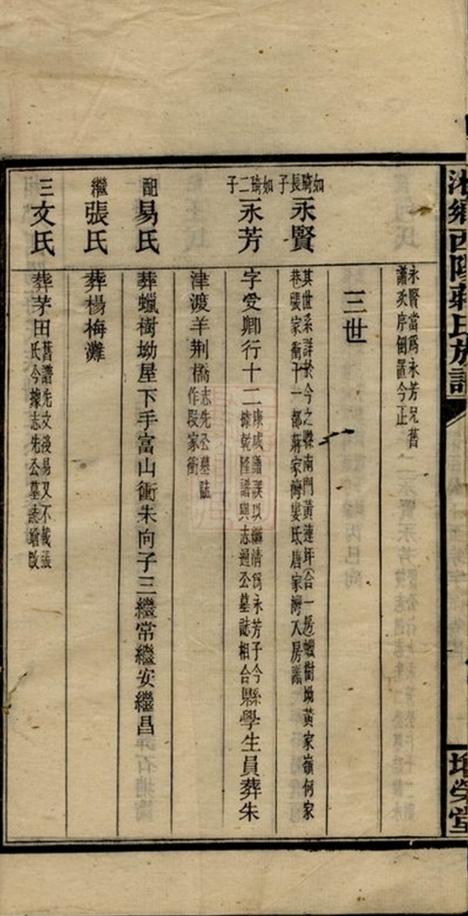 湘鄉西陽蔣氏族譜
培榮堂
永賢當爲永芳兄舊
譜次序倒置今正
三世
如琦長子
永賢
其世系詳於今之縣南門黃連坪合一
巷張家衝十一都蔣家灣婁氐唐家灣入房譜
蠟樹坳黃家嶺何家
如琦二子
永芳
字愛卿行十二
康咸譜誤以繼清爲永芳子今
據乾隆譜與志通公墓誌相合
縣學生員葬朱
津渡羊荆橋
志先公墓誌
作段家衝
配易氏
葬蠟樹坳屋下手富山衝朱向子三繼常繼安繼昌
繼張氏
葬楊梅灘
三文氏
葬茅田
舊譜先文後易又不載張
氏今據志先公墓誌增改